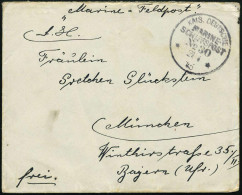 "Marine-Feldpost"
S. H.
KAIS. DEUTSCHE
MARINE-
SCHIFFSPOST
No 50
Fräulein
Gretchen Glückstein
München
Winthirstraße 35 I/II
frei.
Bayern (Ufr.)